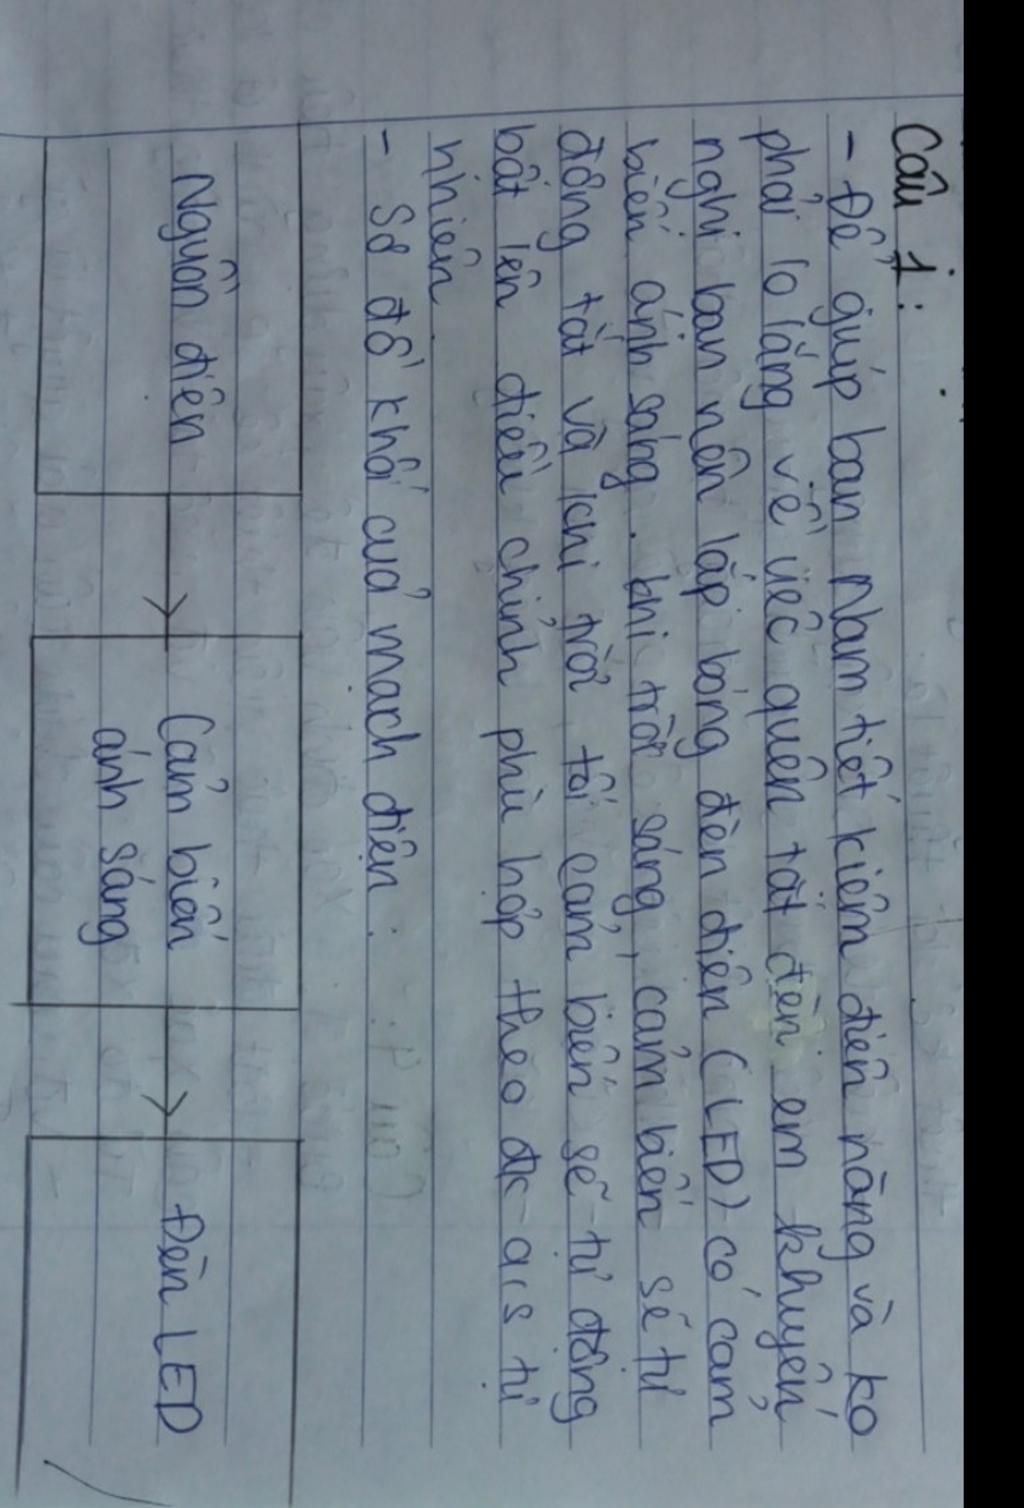 Câu 1:
- Để giúp bạn Nam tiết kiệm điện năng và ko
phải lo lắng về việc quên tắt đèn em khuyến
nghị bạn nên lắp bóng đèn điện (LED) có cảm
biến ánh sáng. khi trời sáng, cảm biến sẽ tự
động tắt và khi trời tối cảm biến sẽ tự động
bật lên điều chỉnh phù hợp theo đk a/s tự
nhiên
- Sơ đồ khối của mạch điện.
Nguồn điện
Cảm biến
ánh sáng
Đèn LED